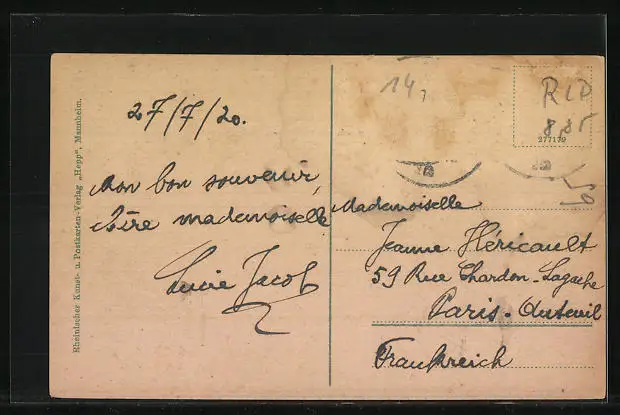 27/7/20.
Mon bon souvenir,
chère mademoiselle
Lucie Jacob
Mademoiselle
Jeanne Héricault
59 Rue Chardon-Lagache
Paris-Auteuil
Frankreich
14,
RLP
8,85
277179
Rheinischer Kunst- u. Postkarten-Verlag „Hepp", Mannheim.